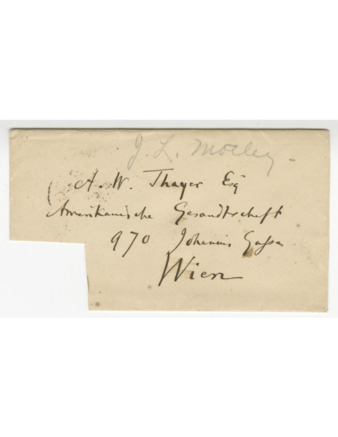 J. L. Motley
A. W. Thayer Esq
Amerikanische Gesandtschaft
970 Johannis Gasse
Wien